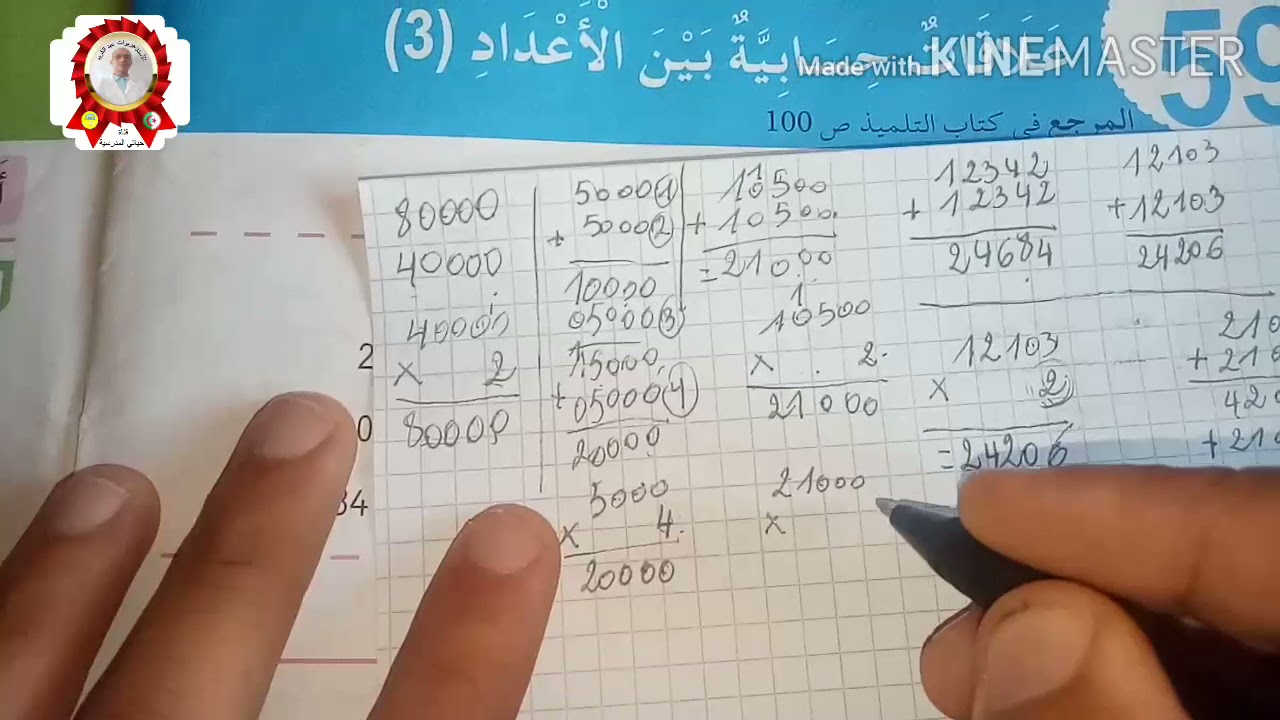 عَلَاقَاتٌ حِسَابِيَّةٌ بَيْنَ الْأَعْدَادِ (3)
59
Made with KINEMASTER
المرجع في كتاب التلميذ ص 100
قناة
حياتي المدرسية
80000
40000
40000
× 2
80000
5000 1
+ 5000 2
10000
05000 3
15000
+ 05000 4
20000
5000
× 4
20000
1
10500
+ 10500
= 21000
1
10500
× 2
21000
21000
×
12342
+ 12342
24684
12103
+ 12103
24206
12103
× 2
= 24206
210
+ 210
420
+ 210
2
0
34